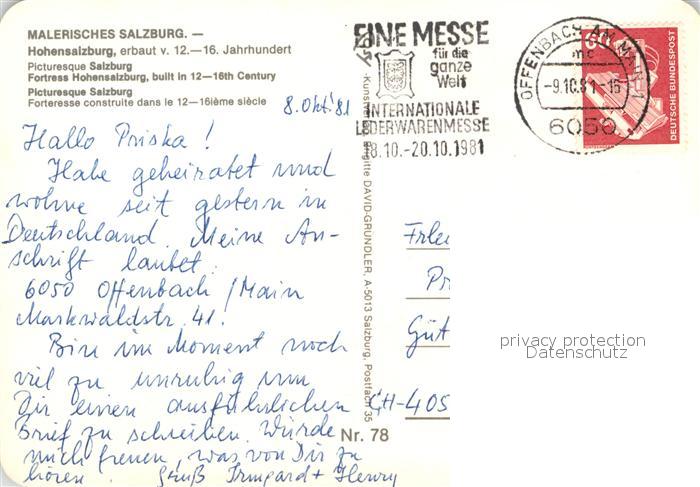 MALERISCHES SALZBURG. —
Hohensalzburg, erbaut v. 12.—16. Jahrhundert
Picturesque Salzburg
Fortress Hohensalzburg, built in 12—16th Century
Picturesque Salzburg
Forteresse construite dans le 12—16ième siècle
8. Okt. 81
Hallo Priska!
Habe geheiratet und
wohne seit gestern in
Deutschland. Meine An-
schrift lautet
6050 Offenbach/Main
Markwaldstr. 41.
Bin im Moment noch
viel zu unruhig um
Dir einen ausführlichen
Brief zu schreiben. Würde
mich freuen, was von Dir zu
hören. Gruß Irmgard + Henry
Nr. 78
Brigitte DAVID-GRÜNDLER, A-5013 Salzburg, Postfach 35
EINE MESSE
für die
ganze
Welt
INTERNATIONALE
LEDERWARENMESSE
18.10.–20.10.1981
OFFENBACH AM MAIN 1
mc
-9.10.81-16
6050
60
DEUTSCHE BUNDESPOST
Pr
Güt
CH-405
privacy protection
Datenschutz